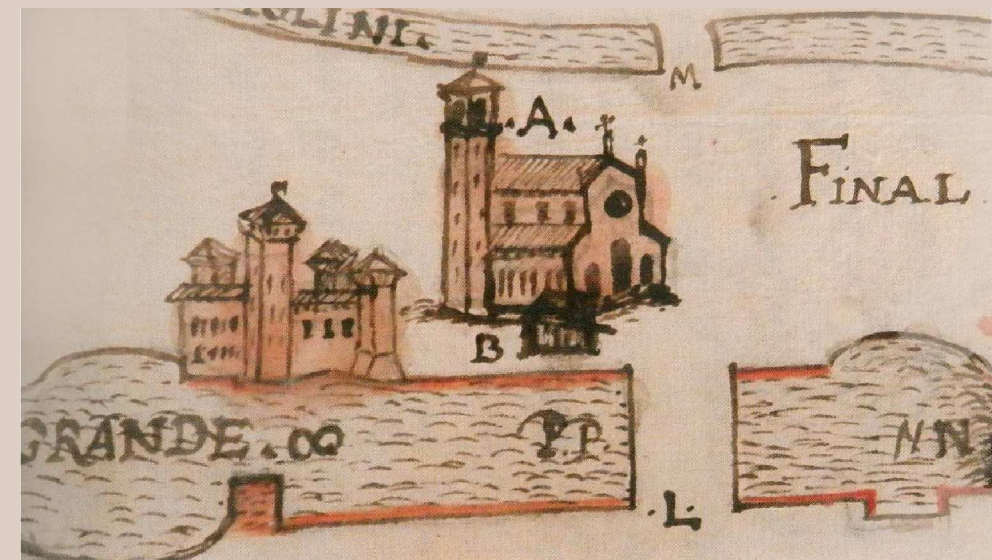 OLINI.
M
.A.
FINAL
B
GRANDE.OO
P.P.
NN
.L.